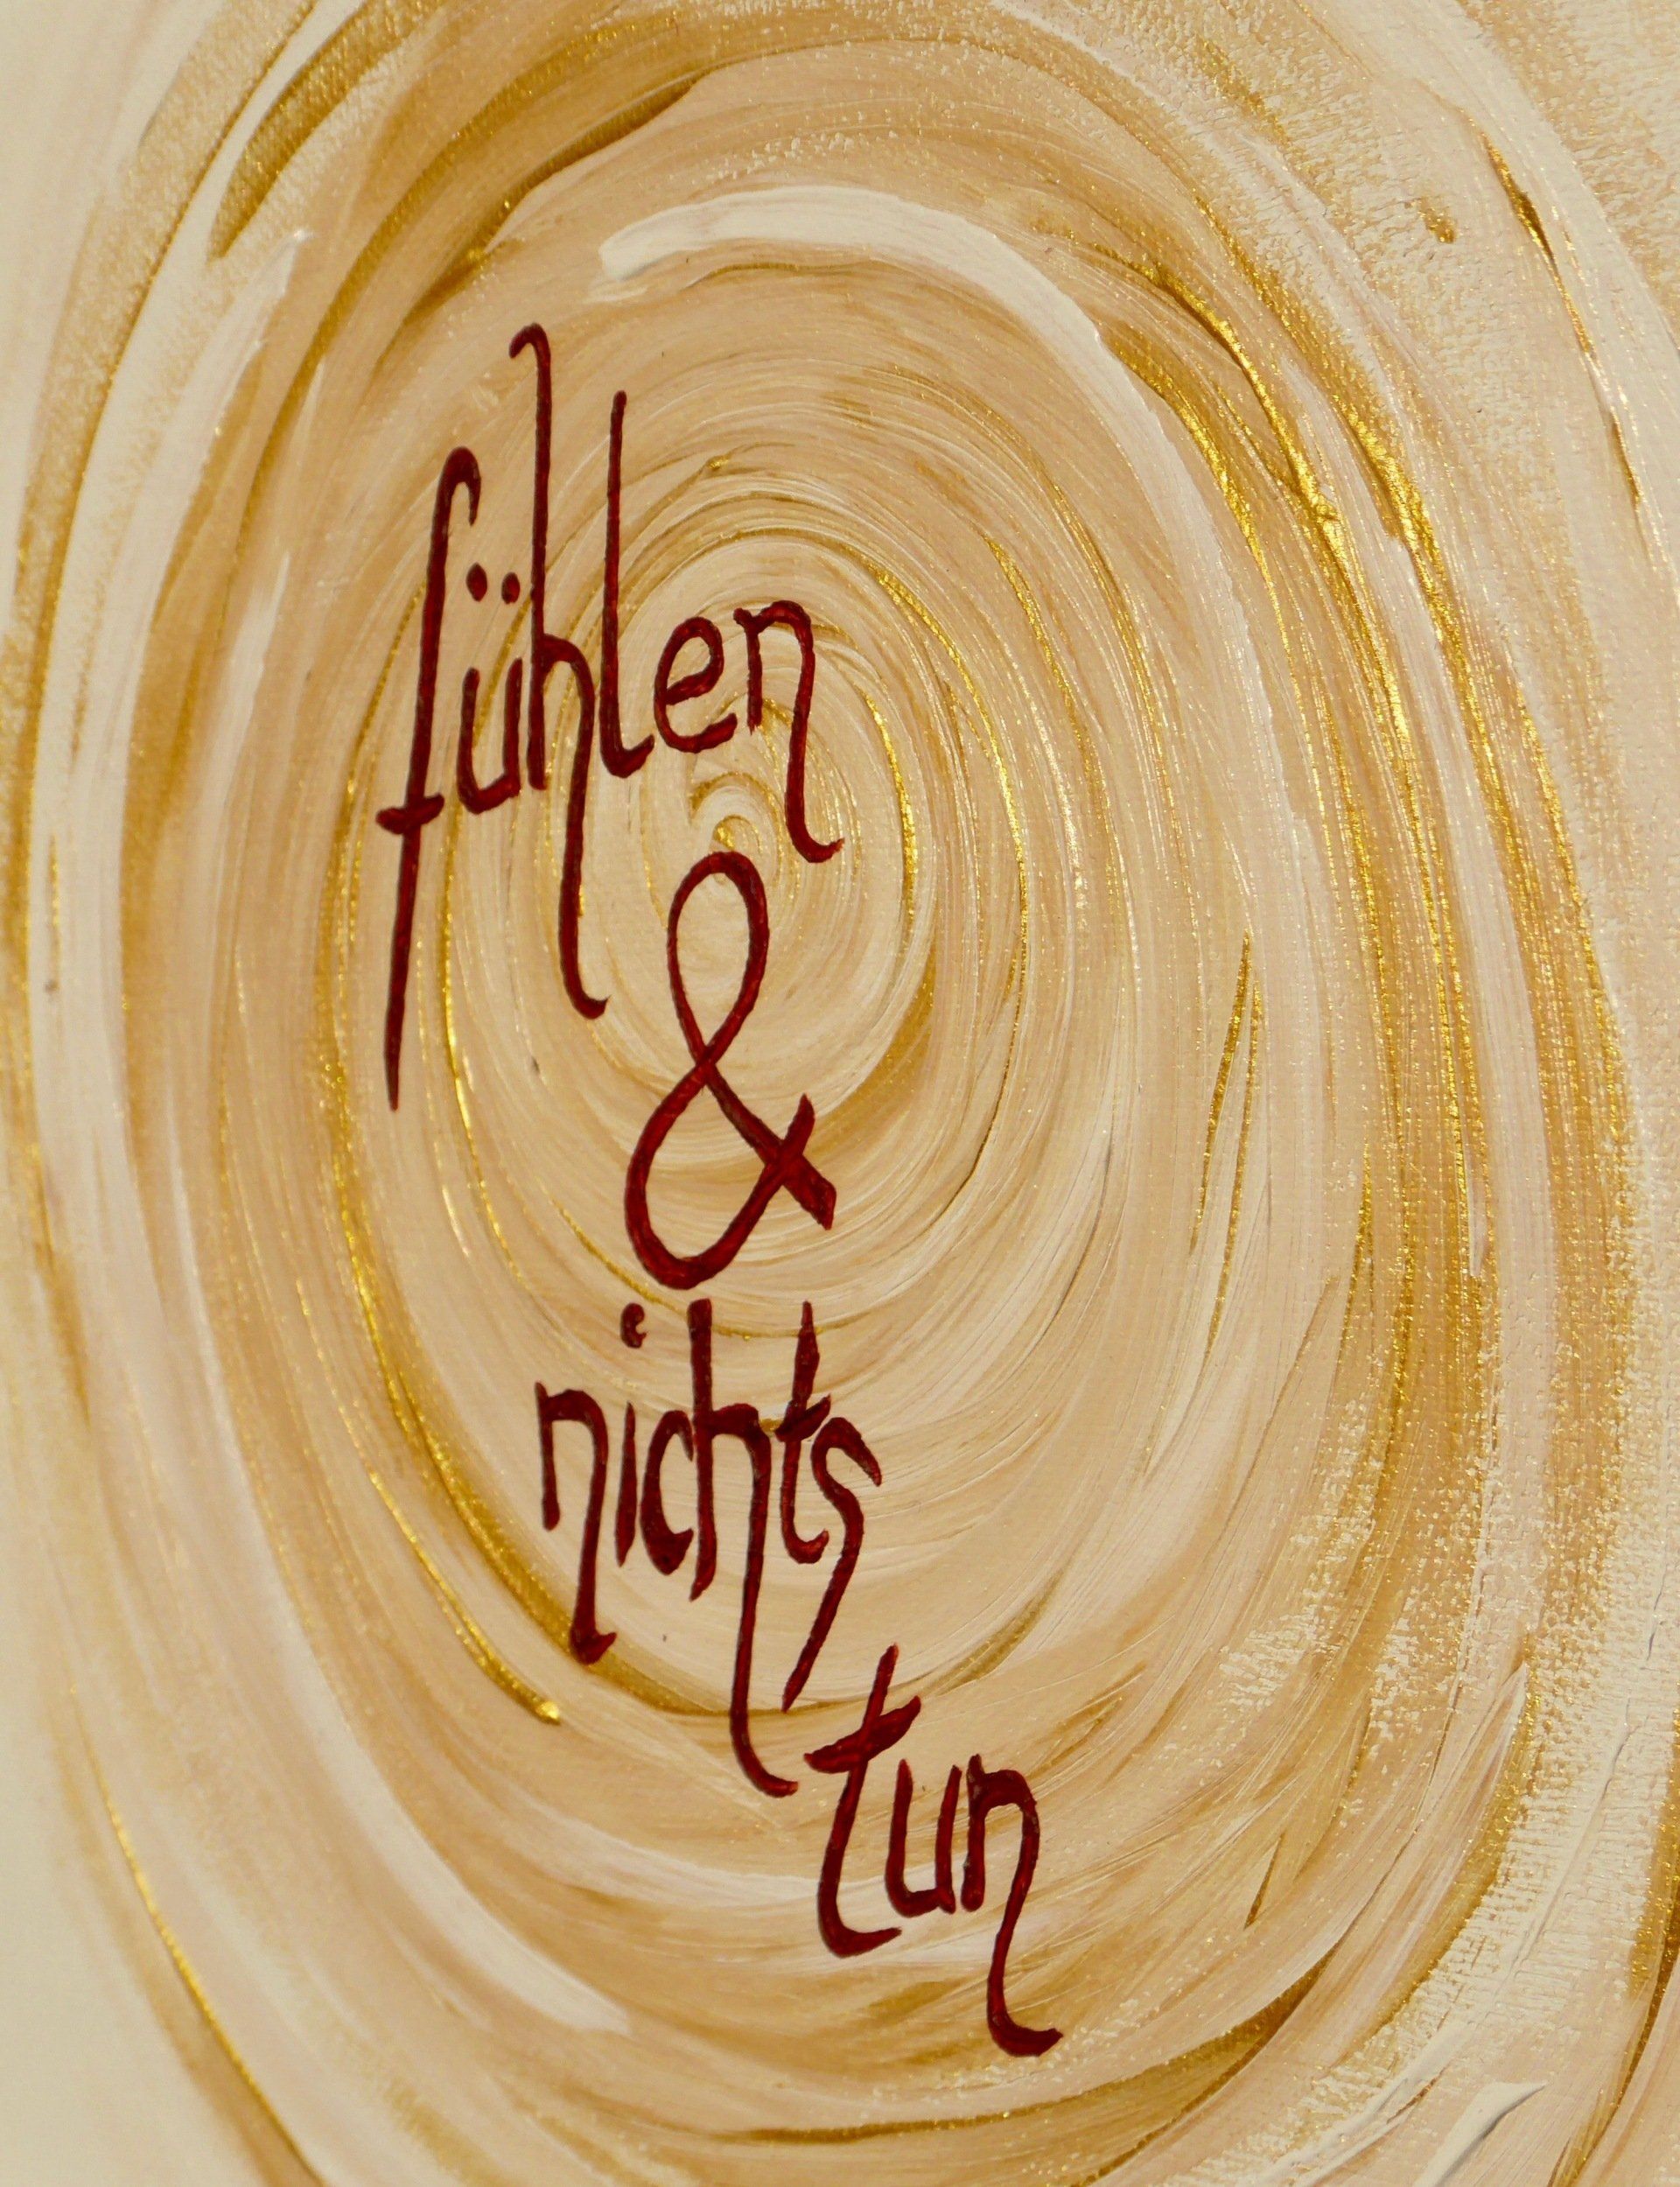 fühlen
&
nichts
tun